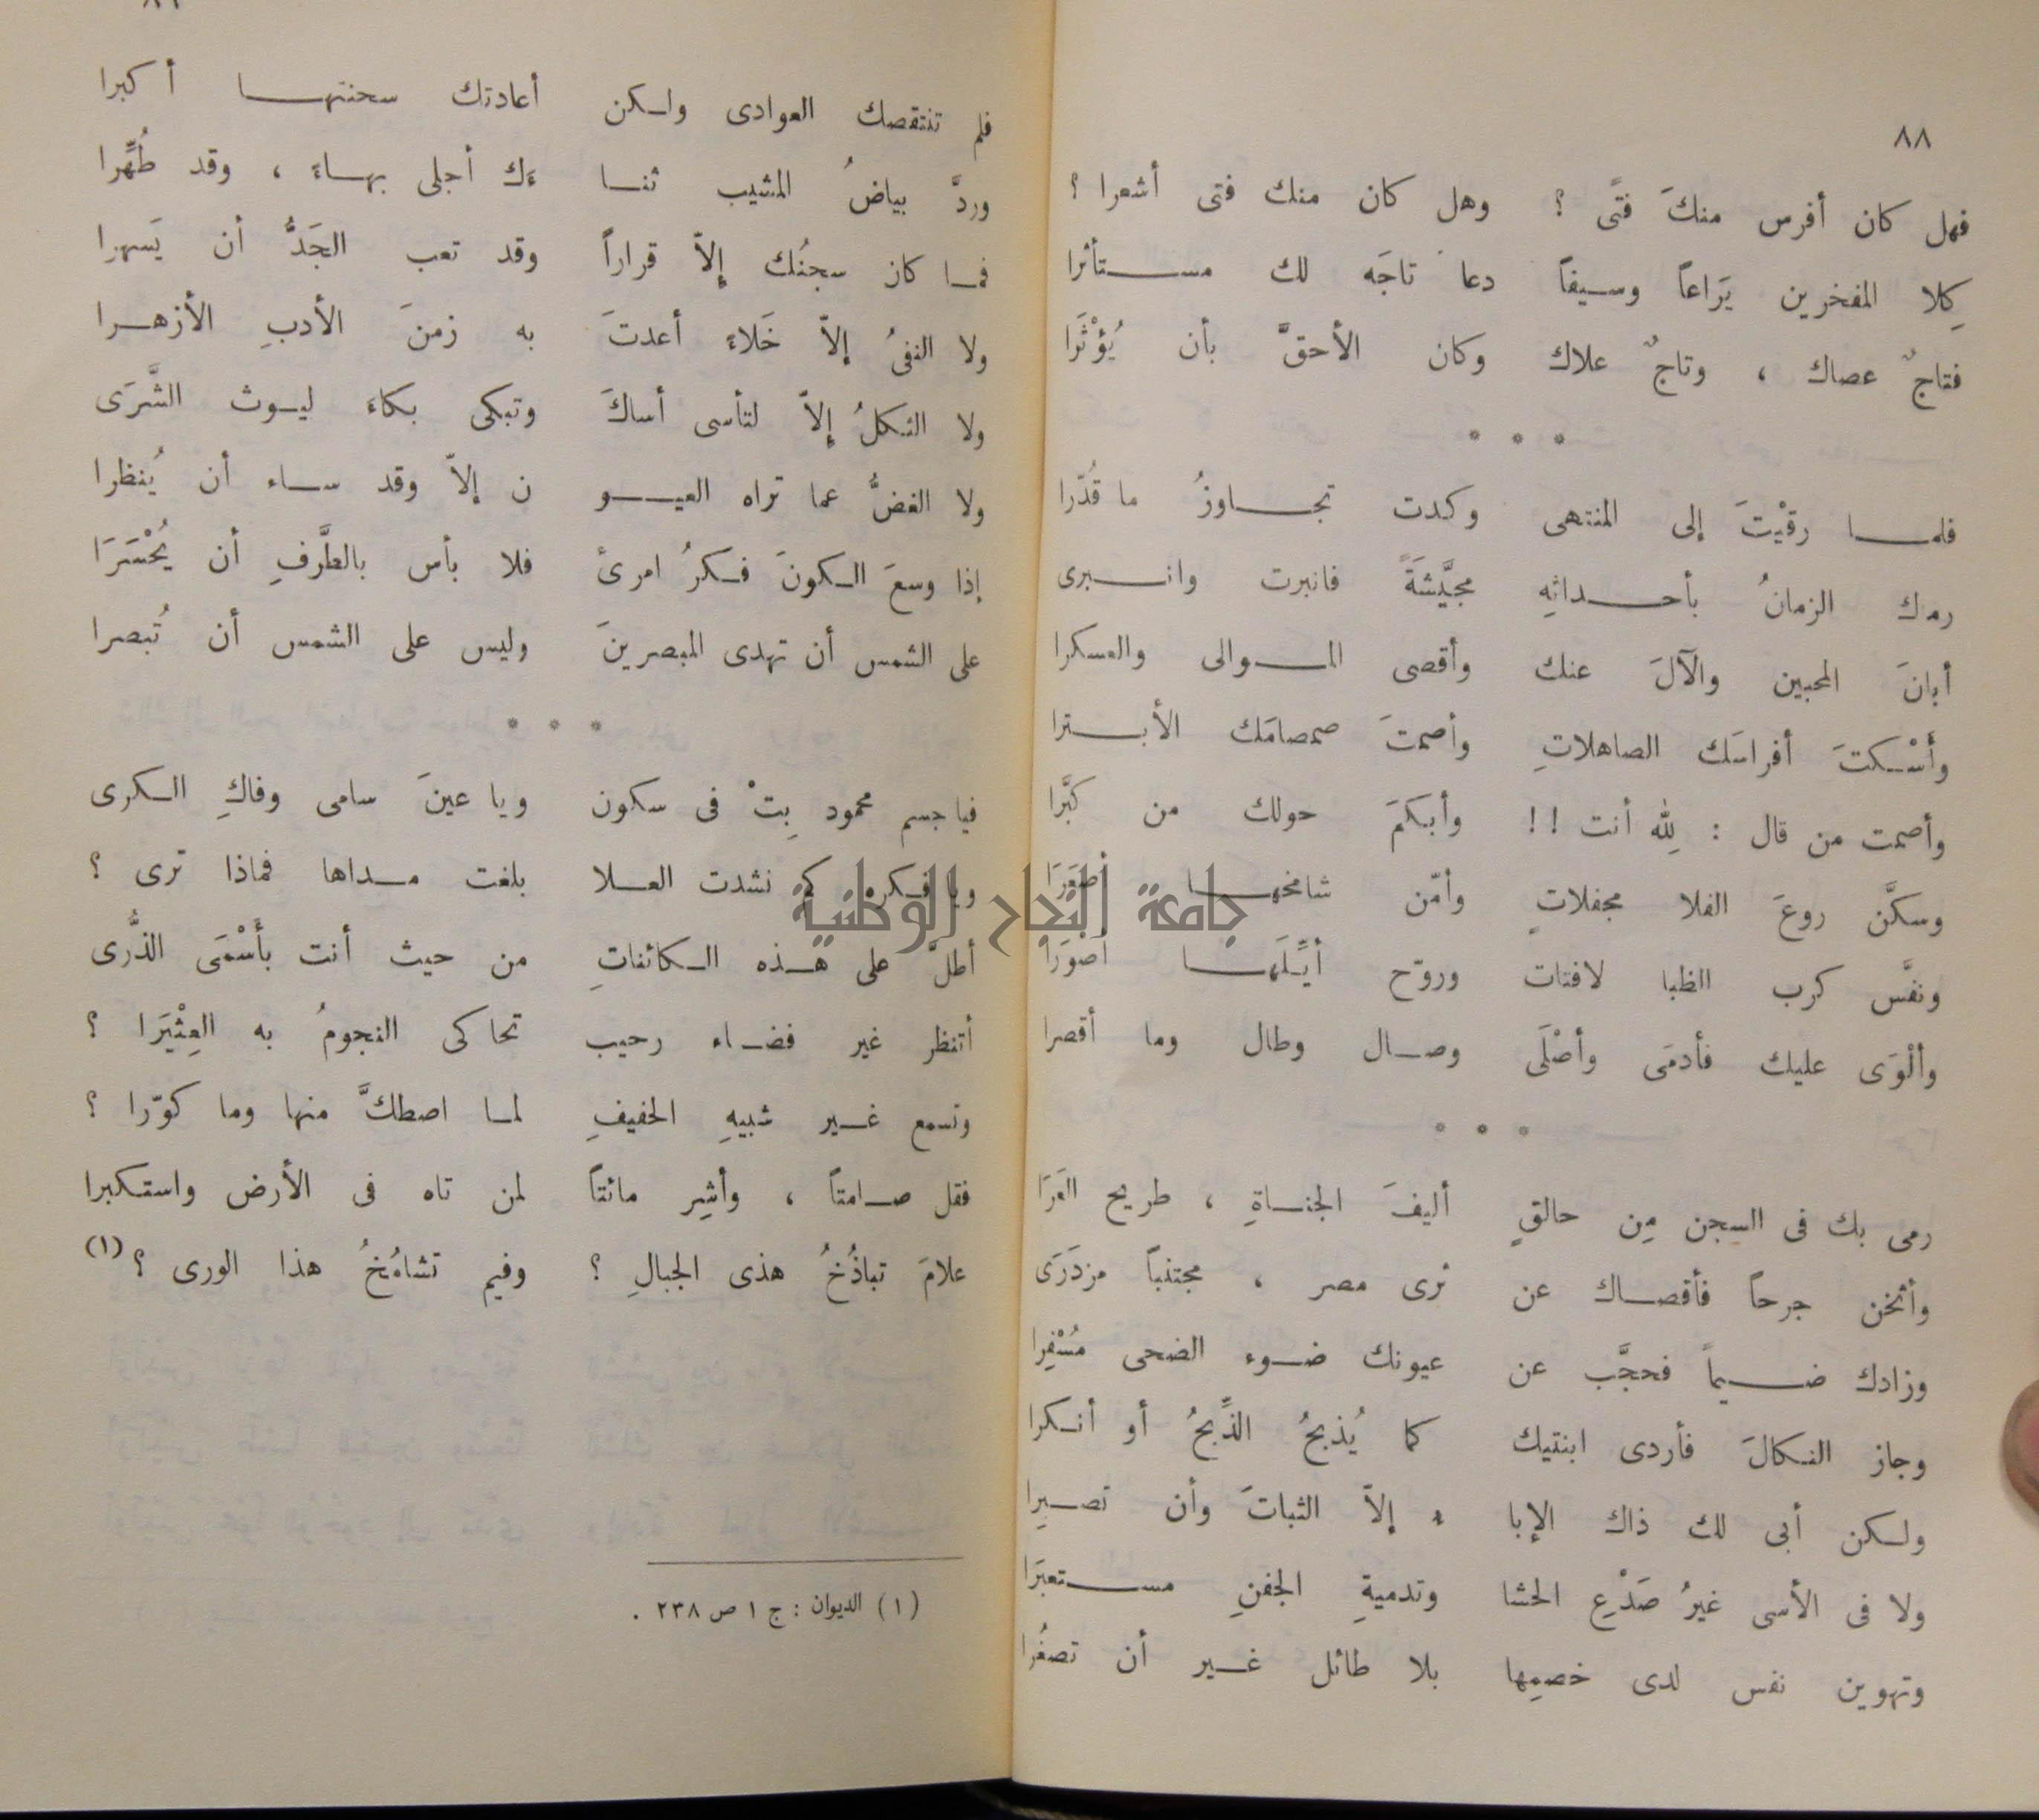 ٨٨
فهل كان أفرس منكَ فتًى ؟ وهل كان منك فتى أشعرا ؟
كِلا المفخرين يَرَاعاً وسيفاً دعا تاجَه لك مستأثرا
فتاجٌ عصاك ، وتاجٌ علاك وكان الأحقَّ بأن يُؤْثَرَا
* * *
فلما رقيْتَ إلى المنتهى وكدت تجاوزُ ما قُدّرا
رماك الزمانُ بأحداثِه مجيَّشةً فانبرت وانبرى
أبانَ المحبين والآلَ عنك وأقصى الموالى والعسكرا
وأَسْكتَ أفراسَك الصاهلاتِ وأصمتَ صمصامَك الأبترا
وأصمت من قال : لِلّه أنت ! ! وأبكمَ حولك من كبَّرا
وسكَّن روعَ الفلا مجفلاتٍ وأمّن شامخها أصْعَرَا
ونفَّس كرب الظبا لافتات وروّح أيِّلَها أصْوَرَا
وألْوَى عليك فأدمَى وأصْلَى وصال وطال وما أقصرا
* * *
رمى بك فى السجن مِن حالقٍ أليفَ الجناةِ ، طريح العَرَا
وأثخن جرحاً فأقصاك عن ثرى مصر ، مجتنباً مزدَرَى
وزادك ضيماً فحجَّب عن عيونك ضوء الضحى مُسْفِرا
وجاز النكالَ فأردى ابنتيك كما يُذبحُ الذِّبحُ أو أنكرا
ولكن أبى لك ذاك الإبا ء إلاّ الثباتَ وأن تصبِرا
ولا فى الأسى غيرُ صَدْعِ الحشا وتدميةِ الجفنِ مستعبَرَا
وتهوين نفس لدى خصمِها بلا طائل غير أن تصغُرا
فلم تنتقصك العوادى ولكن أعادتك سحنتها أكبرا
وردَّ بياضُ المشيب ثنا ءَك أجلى بهاءً ، وقد طُهِّرا
فما كان سجنُك إلاّ قراراً وقد تعب الجَدُّ أن يَسهرا
ولا النفىُ إلاّ خَلاءً أعدتَ به زمنَ الأدبِ الأزهرا
ولا الثكلُ إلاّ لتأسى أساكَ وتبكى بكاءَ ليوث الشَّرَى
ولا الغضُّ عما تراه العيو ن إلاّ وقد ساء أن يُنظرا
إذا وسعَ الكونَ فكرُ امرئ فلا بأس بالطَّرفِ أن يُحْسَرَا
على الشمس أن تهدى المبصرينَ وليس على الشمس أن تُبصرا
* * *
فيا جسم محمود بِتْ فى سكون ويا عينَ سامى وفاكِ الكرى
ويا فكره كم نشدت العلا بلغت مداها فماذا ترى ؟
أطلَّ على هذه الكائناتِ من حيث أنت بأَسْمَى الذُّرى
أتنظر غير فضاء رحيب تحاكى النجومُ به العِثْيَرا ؟
وتسمع غير شبيهِ الحفيفِ لما اصطكَّ منها وما كوّرا ؟
فقل صامتاً ، وأشِر مائتاً لمن تاه فى الأرض واستكبرا
علامَ تباذُخُ هذى الجبالِ ؟ وفيم تشامُخُ هذا الورى ؟ (١)
(١) الديوان : ج ١ ص ٢٣٨ .
جامعة النجاح الوطنية